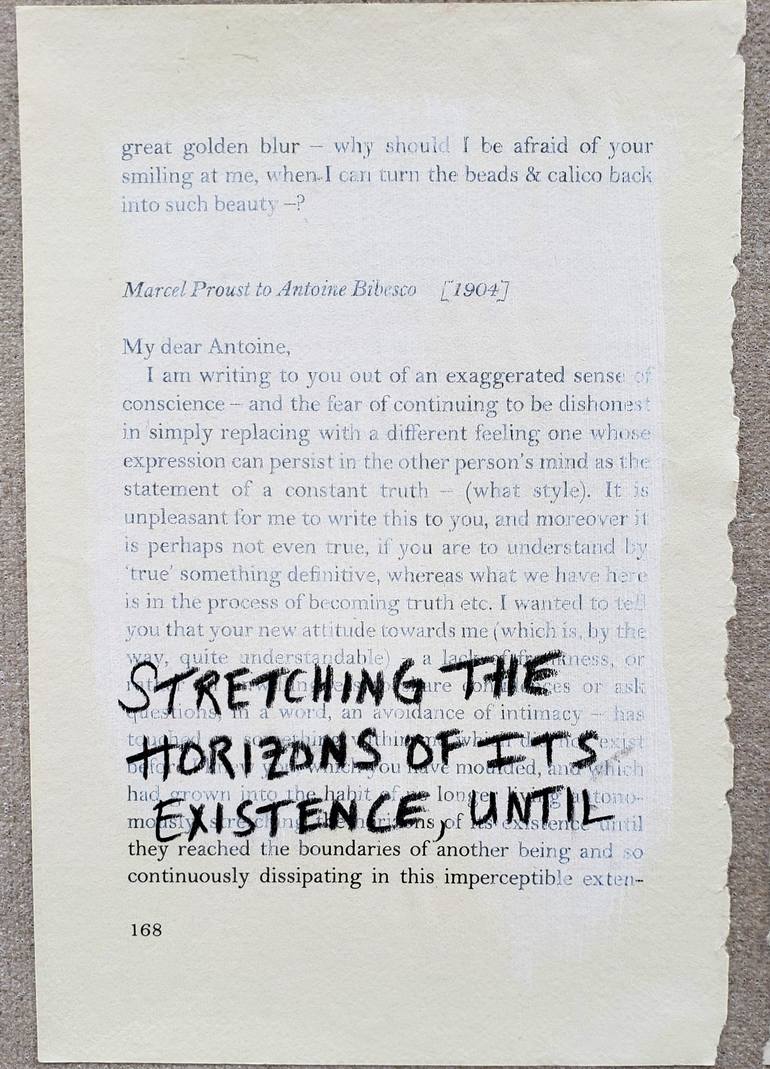 great golden blur – why should I be afraid of your
smiling at me, when I can turn the beads & calico back
into such beauty –?
Marcel Proust to Antoine Bibesco [1904]
My dear Antoine,
I am writing to you out of an exaggerated sense of
conscience – and the fear of continuing to be dishonest
in simply replacing with a different feeling one whose
expression can persist in the other person's mind as the
statement of a constant truth – (what style). It is
unpleasant for me to write this to you, and moreover it
is perhaps not even true, if you are to understand by
'true' something definitive, whereas what we have here
is in the process of becoming truth etc. I wanted to tell
you that your new attitude towards me (which is, by the
way, quite understandable) – a lack of frankness, or
STRETCHING THE
or ask
questions, in a word, an avoidance of intimacy – has
HORIZONS OF ITS
you have moulded, and which
had grown into the habit of no longer living
EXISTENCE, UNTIL
stretching the horizons of its existence until
they reached the boundaries of another being and so
continuously dissipating in this imperceptible exten-
168